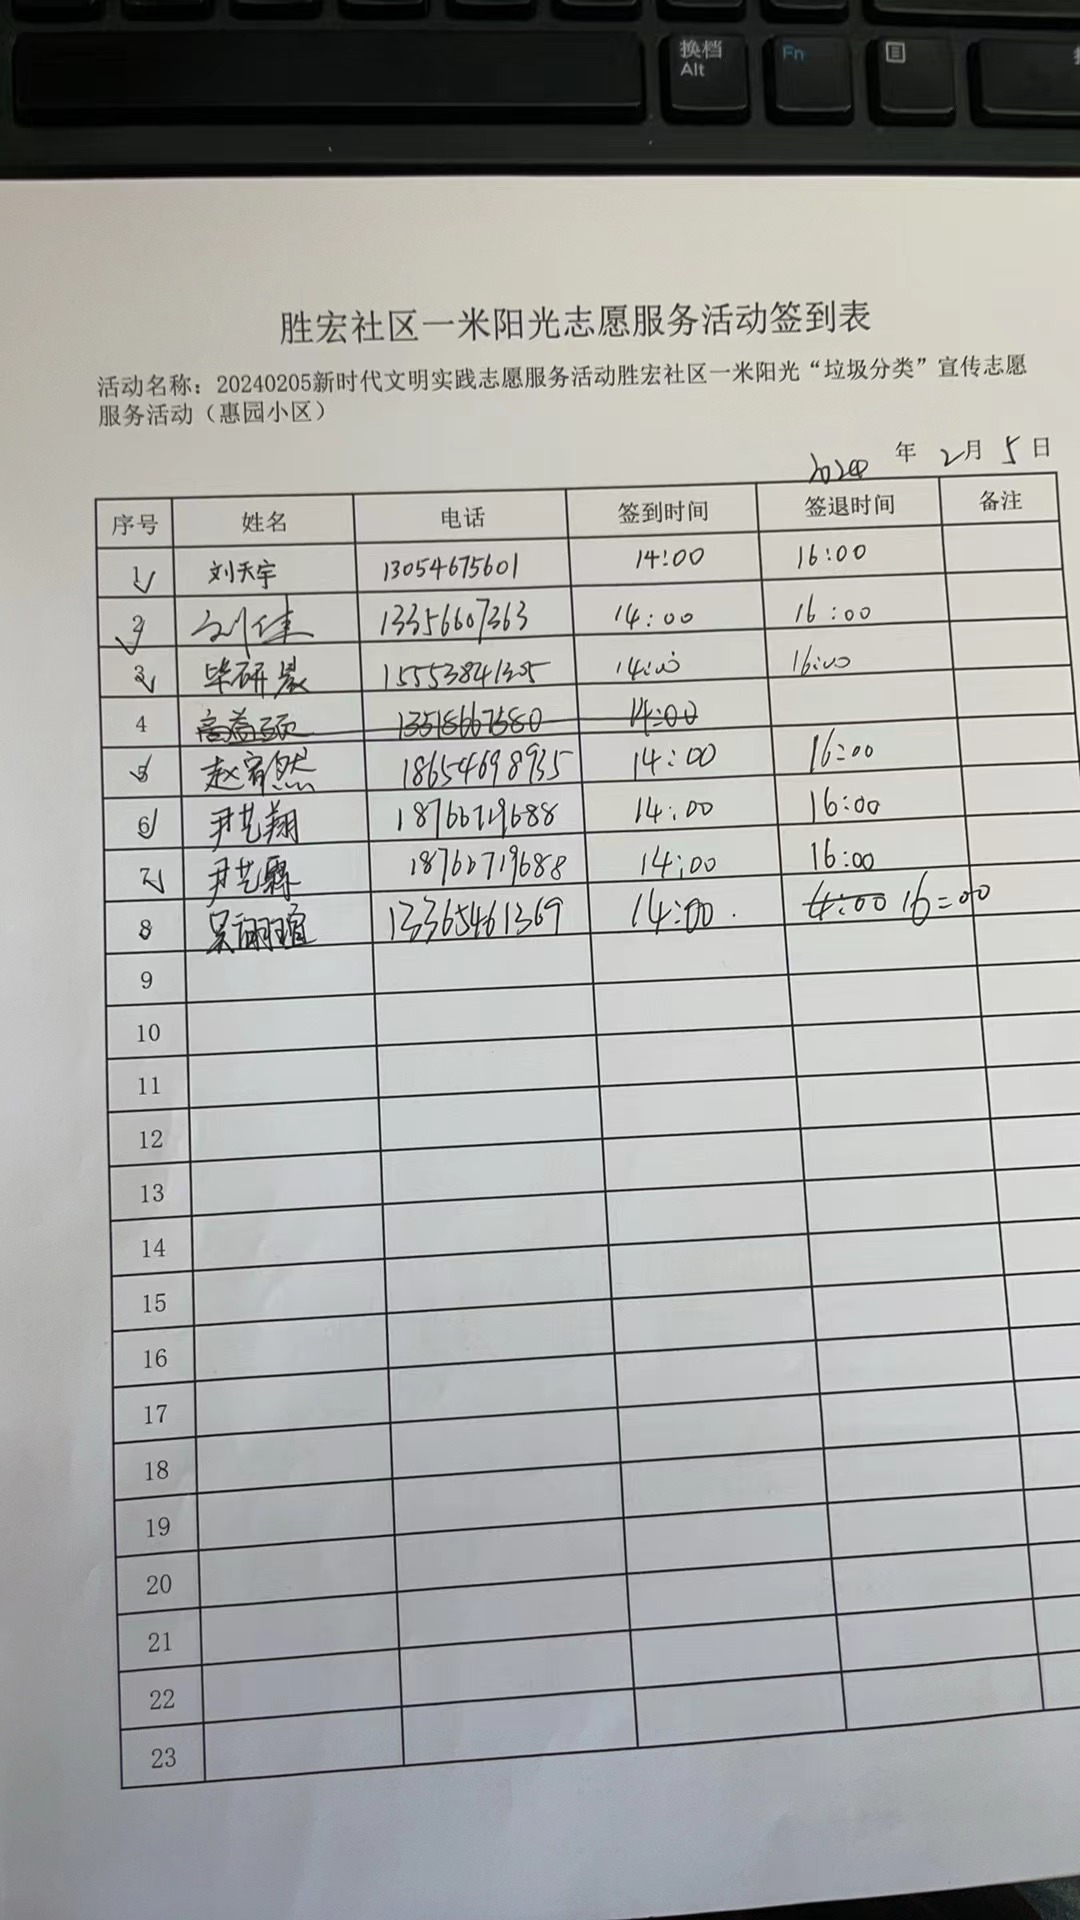 换档
Alt
Fn
胜宏社区一米阳光志愿服务活动签到表
活动名称：20240205新时代文明实践志愿服务活动胜宏社区一米阳光“垃圾分类”宣传志愿
服务活动（惠园小区）
2024 年 2月 5日
序号 姓名 电话 签到时间 签退时间 备注
1 刘天宇 13054675601 14:00 16:00
2 刘佳 13356607363 14:00 16:00
3 毕研晨 15553841305 14:00 16:00
4 14:00
5 赵宥然 18654698935 14:00 16:00
6 尹艺翔 18766719688 14:00 16:00
7 尹艺霖 18766719688 14:00 16:00
8 吴翊瑄 13365461369 14:00. 4:00 16=00
9
10
11
12
13
14
15
16
17
18
19
20
21
22
23